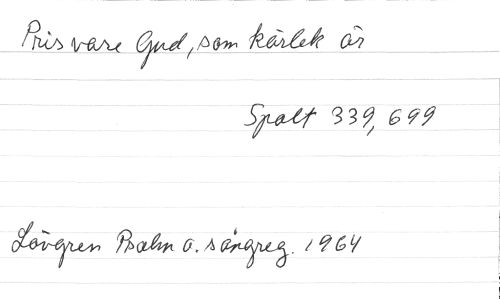 Pris vare Gud, som kärlek är
Spalt 339, 699
Lövgren Psalm o. sångreg. 1964